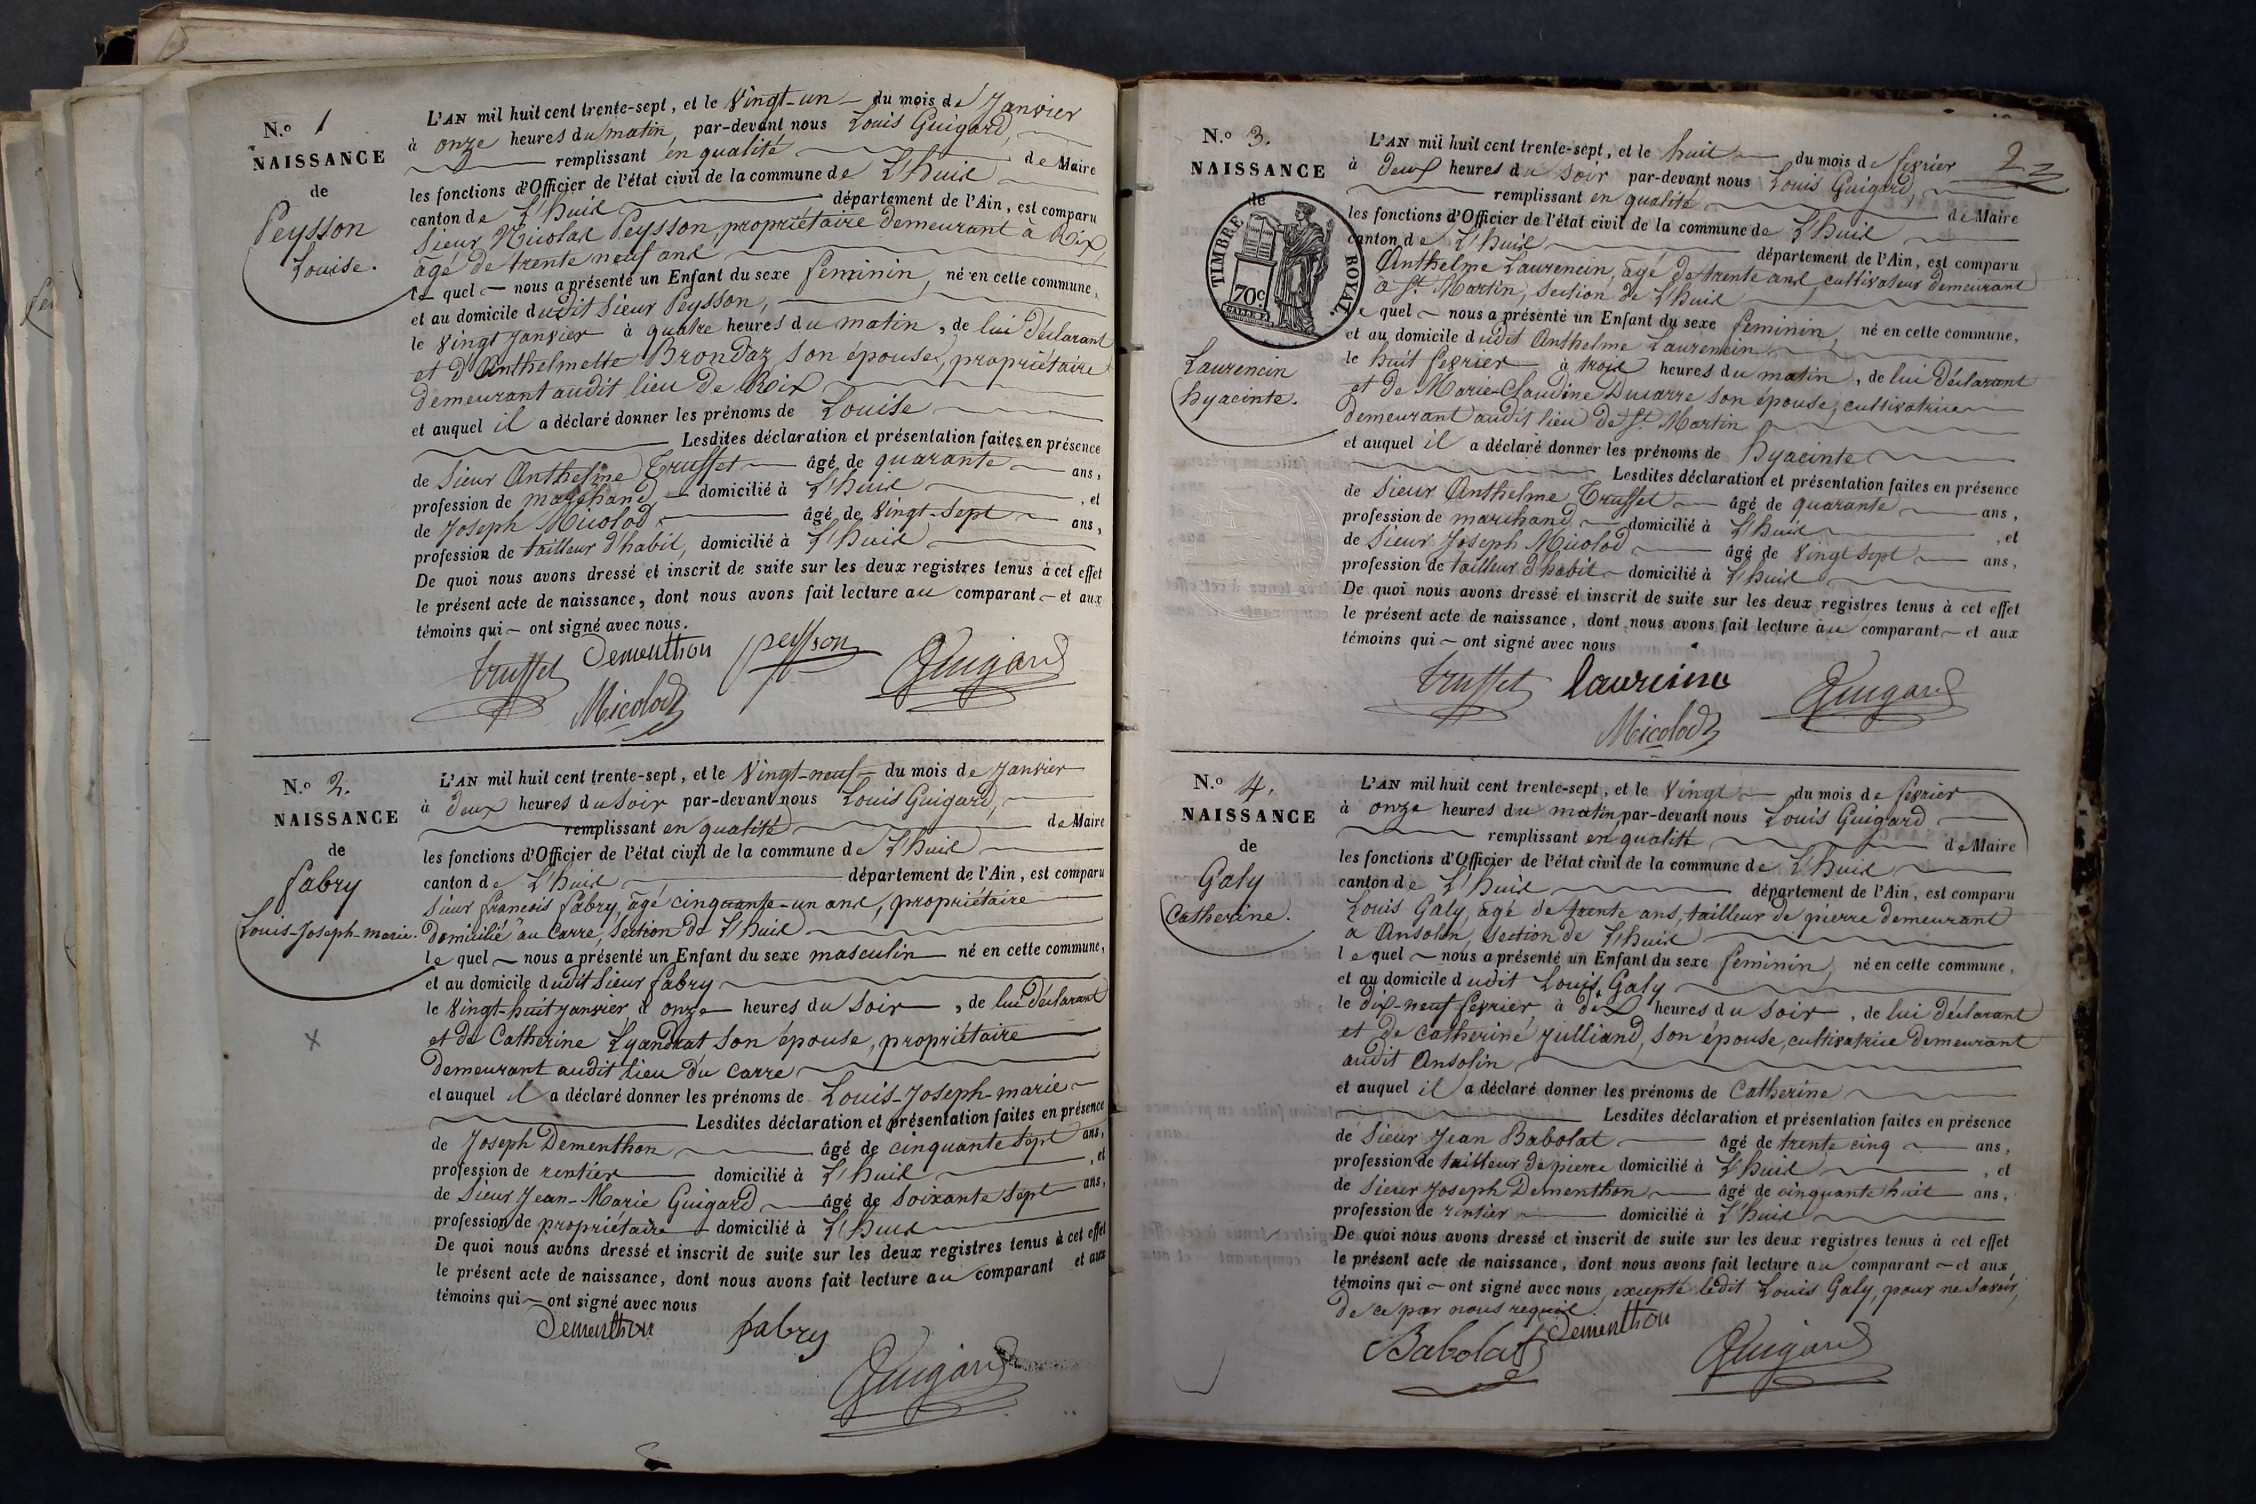 N.o 1
NAISSANCE
de
Peysson
Louise.
L'AN mil huit cent trente-sept, et le vingt-un du mois de Janvier
à onze heures du matin, par-devant nous Louis Guigard,
remplissant en qualité de Maire
les fonctions d'Officier de l'état civil de la commune de L'huis
canton de L'huis département de l'Ain, est comparu
Sieur Nicolas Peysson, propriétaire demeurant à Roix,
âgé de trente neuf ans
le quel nous a présenté un Enfant du sexe feminin, né en cette commune,
et au domicile dudit Sieur Peysson,
le vingt Janvier à quatre heures du matin, de lui déclarant
et d'Anthelmette Brondaz son épouse, propriétaire
demeurant audit lieu de Roix
et auquel il a déclaré donner les prénoms de Louise
Lesdites déclaration et présentation faites en présence
de Sieur Anthelme Trusset âgé de quarante ans,
profession de marchand domicilié à L'huis, et
de Joseph Micolod âgé de vingt-sept ans,
profession de tailleur d'habit, domicilié à L'huis
De quoi nous avons dressé et inscrit de suite sur les deux registres tenus à cet effet
le présent acte de naissance, dont nous avons fait lecture au comparant et aux
témoins qui ont signé avec nous.
trusset Dementhon peysson Guigard
Micolod
N.o 2.
NAISSANCE
de
fabry
Louis-Joseph-marie.
L'AN mil huit cent trente-sept, et le vingt-neuf du mois de Janvier
à deux heures du soir par-devant nous Louis Guigard,
remplissant en qualité de Maire
les fonctions d'Officier de l'état civil de la commune de L'huis
canton de L'huis département de l'Ain, est comparu
Sieur françois fabry, âgé cinquante-un ans, propriétaire
domicilié au Carre, Section de L'huis
le quel nous a présenté un Enfant du sexe masculin né en cette commune,
et au domicile dudit Sieur fabry
le vingt-huit janvier, à onze heures du soir, de lui déclarant
et de Catherine Lyandrat son épouse, propriétaire
demeurant audit lieu du Carre
et auquel il a déclaré donner les prénoms de Louis-Joseph-marie
Lesdites déclaration et présentation faites en présence
de Joseph Dementhon âgé de cinquante sept ans,
profession de rentier domicilié à L'huis, et
de Sieur Jean-Marie Guigard âgé de soixante sept ans,
profession de propriétaire domicilié à L'huis
De quoi nous avons dressé et inscrit de suite sur les deux registres tenus à cet effet
le présent acte de naissance, dont nous avons fait lecture au comparant et aux
témoins qui ont signé avec nous
Dementhon fabry
Guigard
2
N.o 3.
NAISSANCE
de
TIMBRE ROYAL.
70c
Laurencin
hyacinte.
L'AN mil huit cent trente-sept, et le huit du mois de fevrier
à deux heures du soir par-devant nous Louis Guigard
remplissant en qualité de Maire
les fonctions d'Officier de l'état civil de la commune de L'huis
canton de L'huis département de l'Ain, est comparu
Anthelme Laurencin, âgé de trente ans cultivateur demeurant
à St Martin, section de L'huis
le quel nous a présenté un Enfant du sexe feminin, né en cette commune,
et au domicile dudit Anthelme Laurencin
le huit fevrier à trois heures du matin, de lui déclarant
et de Marie-Claudine Ducarre son épouse, cultivatrice
demeurant audit lieu de St Martin
et auquel il a déclaré donner les prénoms de hyacinte
Lesdites déclaration et présentation faites en présence
de Sieur Anthelme Trusset âgé de quarante ans,
profession de marchand domicilié à L'huis, et
de Sieur Joseph Micolod âgé de vingt sept ans,
profession de tailleur d'habit domicilié à L'huis
De quoi nous avons dressé et inscrit de suite sur les deux registres tenus à cet effet
le présent acte de naissance, dont nous avons fait lecture au comparant et aux
témoins qui ont signé avec nous
trusset Guigard
Micolod
N.o 4.
NAISSANCE
de
Galy
Catherine.
L'AN mil huit cent trente-sept, et le vingt du mois de fevrier
à onze heures du matin par-devant nous Louis Guigard
remplissant en qualité de Maire
les fonctions d'Officier de l'état civil de la commune de L'huis
canton de L'huis département de l'Ain, est comparu
Louis Galy, âgé de trente ans, tailleur de pierre demeurant
a Ansolin, section de L'huis
le quel nous a présenté un Enfant du sexe feminin, né en cette commune,
et au domicile dudit Louis Galy
le dix-neuf fevrier, à dix heures du soir, de lui déclarant
et de catherine Julliand, son épouse, cultivatrice demeurant
audit Ansolin
et auquel il a déclaré donner les prénoms de Catherine
Lesdites déclaration et présentation faites en présence
de Sieur Jean Babolat âgé de trente cinq ans,
profession de tailleur de pierre domicilié à L'huis, et
de Sieur Joseph Dementhon âgé de cinquante huit ans,
profession de rentier domicilié à L'huis
De quoi nous avons dressé et inscrit de suite sur les deux registres tenus à cet effet
le présent acte de naissance, dont nous avons fait lecture au comparant et aux
témoins qui ont signé avec nous, excepté ledit Louis Galy, pour ne savoir,
de ce par nous requis.
Babolat Dementhon Guigard